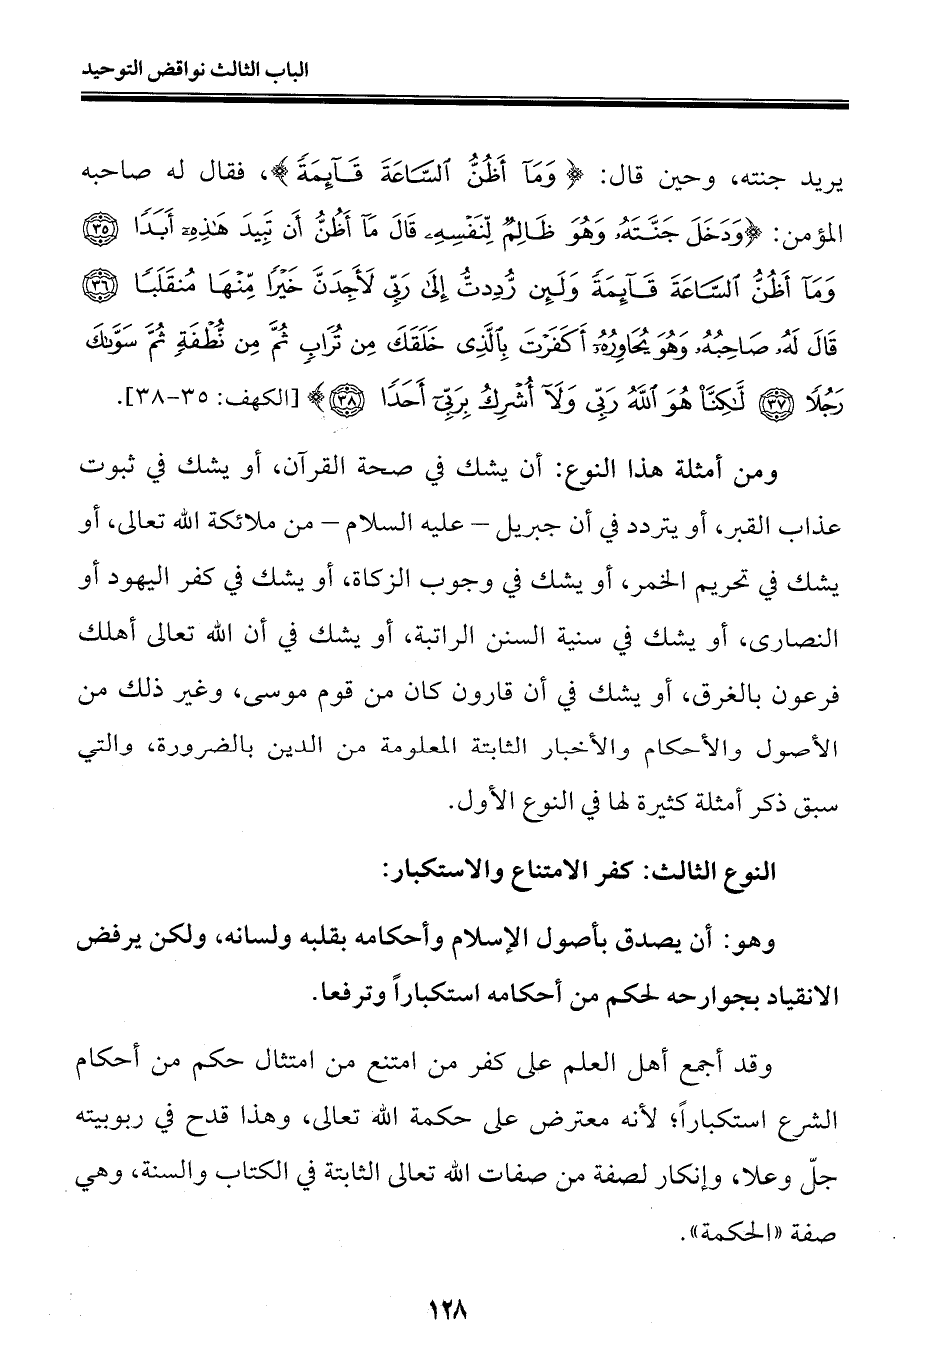 الباب الثالث نواقض التوحيد
يريد جنته، وحين قال: ﴿ وَمَآ أَظُنُّ ٱلسَّاعَةَ قَآئِمَةً ﴾، فقال له صاحبه
المؤمن: ﴿وَدَخَلَ جَنَّتَهُۥ وَهُوَ ظَالِمٌ لِّنَفْسِهِۦ قَالَ مَآ أَظُنُّ أَن تَبِيدَ هَٰذِهِۦٓ أَبَدًا ۝٣٥
وَمَآ أَظُنُّ ٱلسَّاعَةَ قَآئِمَةً وَلَئِن رُّدِدتُّ إِلَىٰ رَبِّى لَأَجِدَنَّ خَيْرًا مِّنْهَا مُنقَلَبًا ۝٣٦
قَالَ لَهُۥ صَاحِبُهُۥ وَهُوَ يُحَاوِرُهُۥٓ أَكَفَرْتَ بِٱلَّذِى خَلَقَكَ مِن تُرَابٍ ثُمَّ مِن نُّطْفَةٍ ثُمَّ سَوَّىٰكَ
رَجُلًا ۝٣٧ لَّٰكِنَّا۠ هُوَ ٱللَّهُ رَبِّى وَلَآ أُشْرِكُ بِرَبِّىٓ أَحَدًا ۝٣٨﴾ [الكهف: ٣٥-٣٨].
ومن أمثلة هذا النوع: أن يشك في صحة القرآن، أو يشك في ثبوت
عذاب القبر، أو يتردد في أن جبريل – عليه السلام – من ملائكة الله تعالى، أو
يشك في تحريم الخمر، أو يشك في وجوب الزكاة، أو يشك في كفر اليهود أو
النصارى، أو يشك في سنية السنن الراتبة، أو يشك في أن الله تعالى أهلك
فرعون بالغرق، أو يشك في أن قارون كان من قوم موسى، وغير ذلك من
الأصول والأحكام والأخبار الثابتة المعلومة من الدين بالضرورة، والتي
سبق ذكر أمثلة كثيرة لها في النوع الأول.
النوع الثالث: كفر الامتناع والاستكبار:
وهو: أن يصدق بأصول الإسلام وأحكامه بقلبه ولسانه، ولكن يرفض
الانقياد بجوارحه لحكم من أحكامه استكباراً وترفعا.
وقد أجمع أهل العلم على كفر من امتنع من امتثال حكم من أحكام
الشرع استكباراً؛ لأنه معترض على حكمة الله تعالى، وهذا قدح في ربوبيته
جلّ وعلا، وإنكار لصفة من صفات الله تعالى الثابتة في الكتاب والسنة، وهي
صفة «الحكمة».
١٢٨